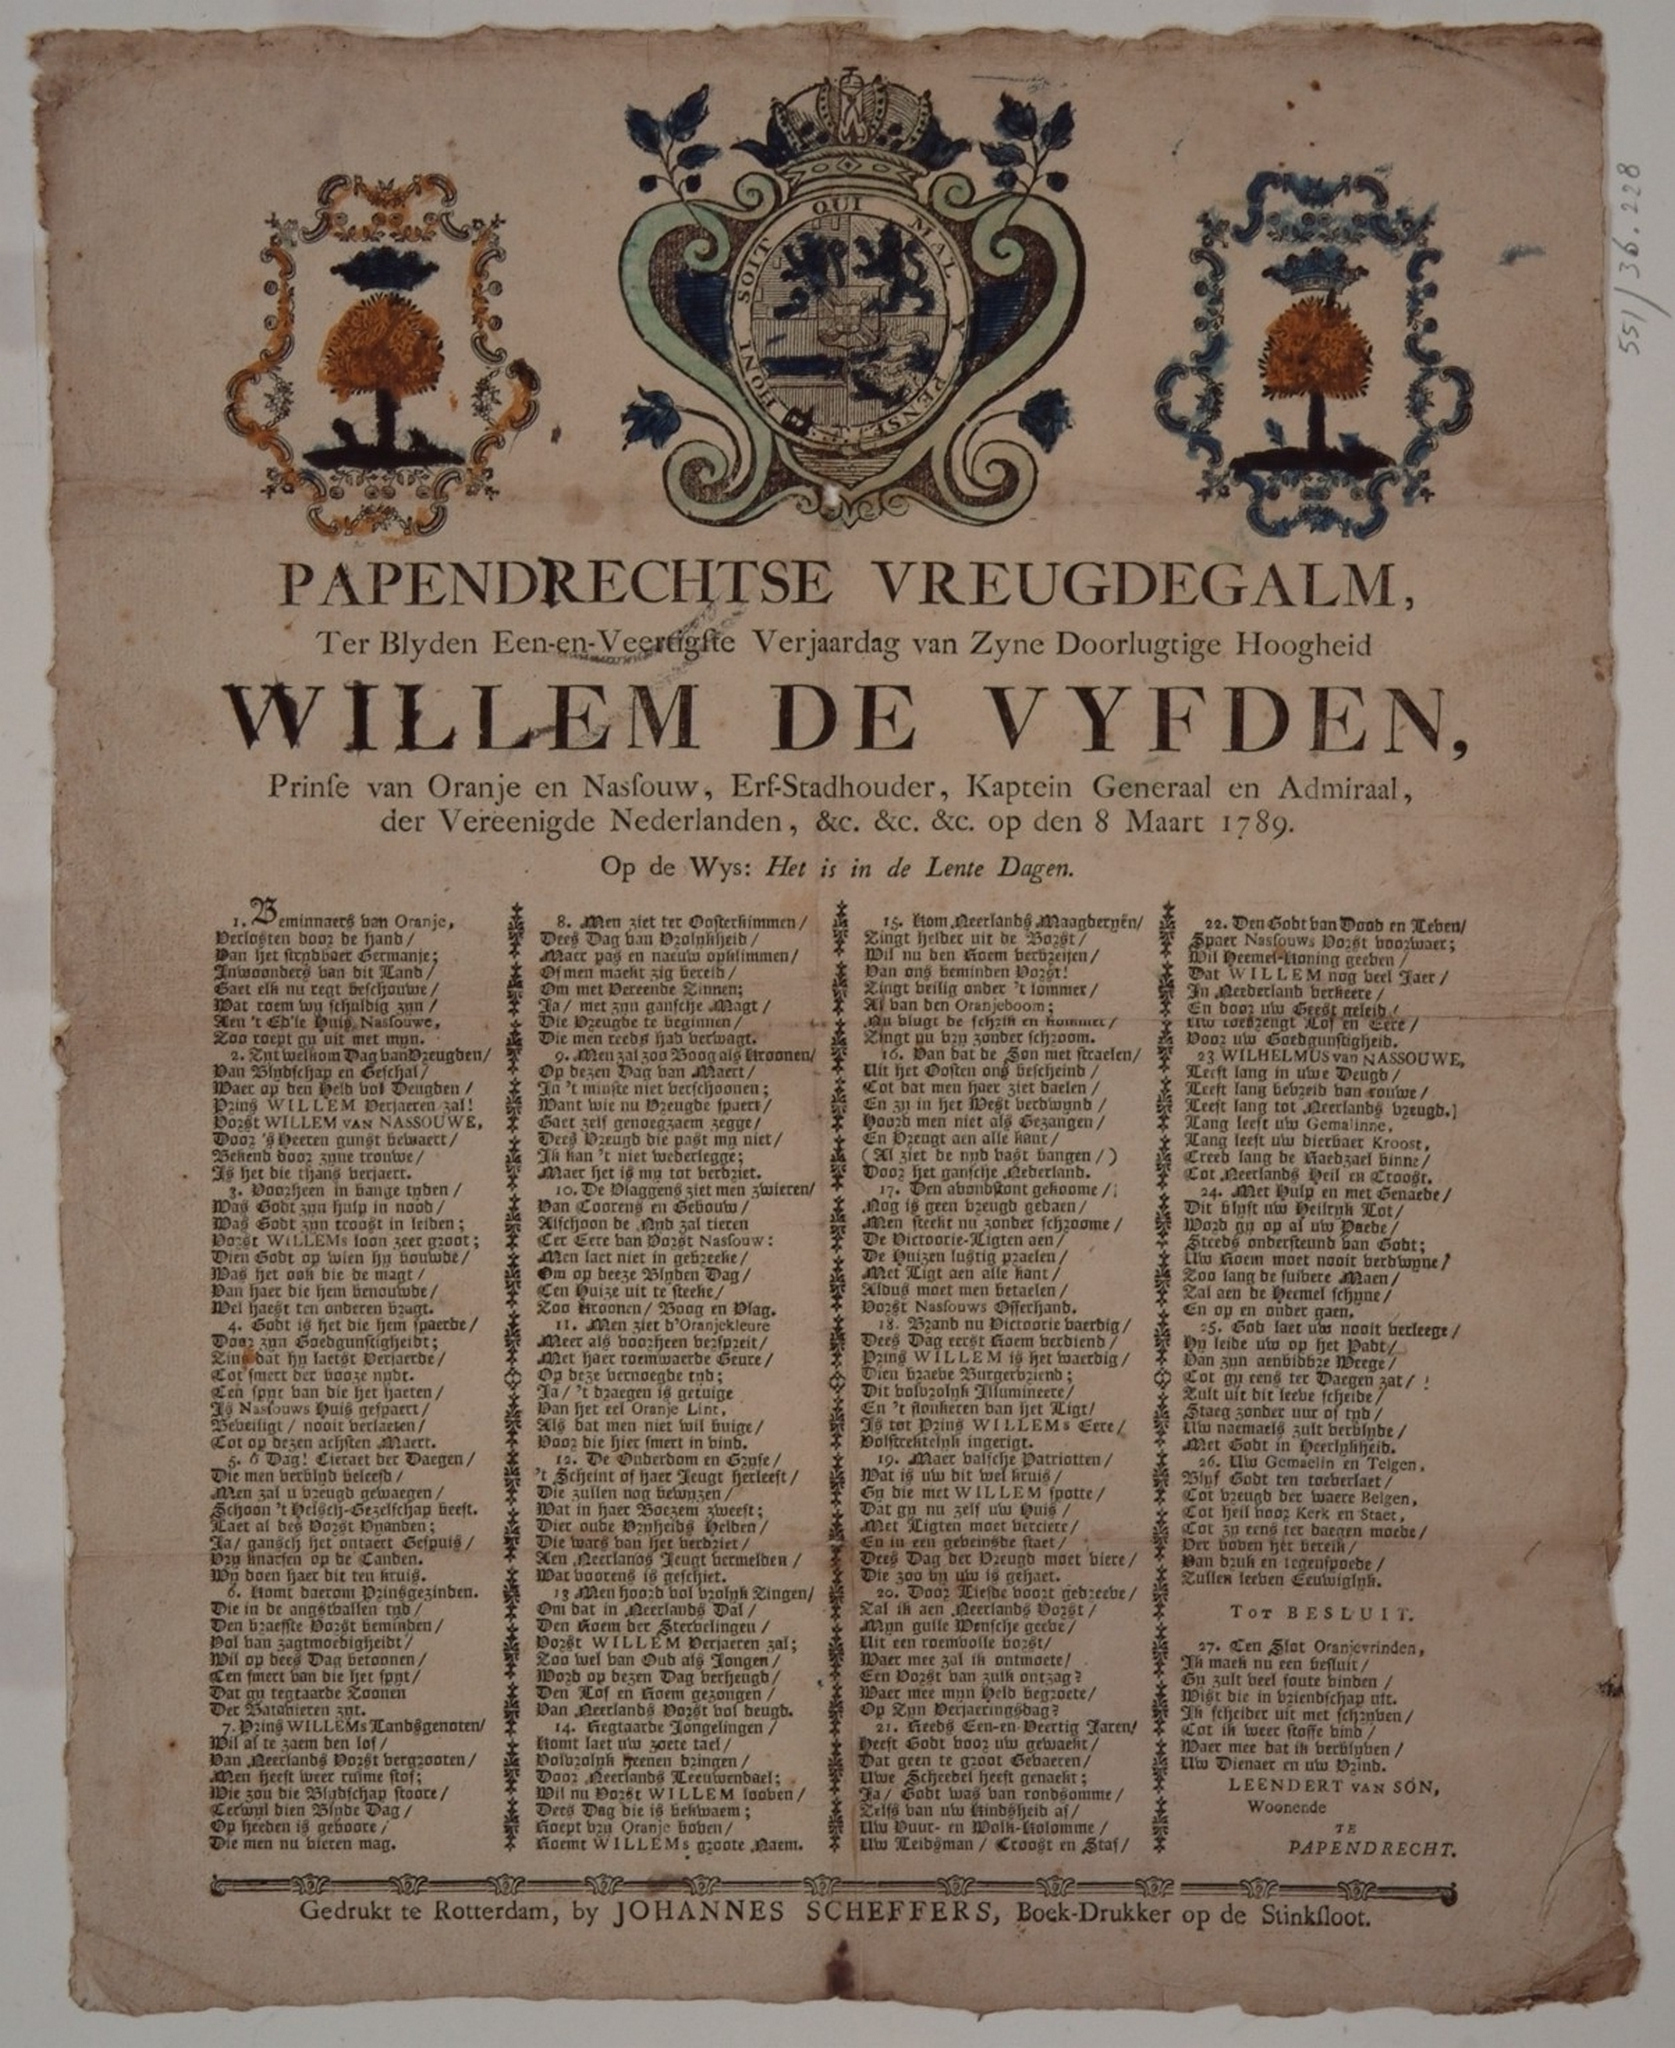 HONI SOIT QUI MAL Y PENSE
551/36.228
PAPENDRECHTSE VREUGDEGALM,
Ter Blyden Een-en-Veertigſte Verjaardag van Zyne Doorlugtige Hoogheid
WILLEM DE VYFDEN,
Prinſe van Oranje en Naſſouw, Erf-Stadhouder, Kaptein Generaal en Admiraal,
der Vereenigde Nederlanden, &c. &c. &c. op den 8 Maart 1789.
Op de Wys: Het is in de Lente Dagen.
1. Beminnaers van Oranje,
Verlosten door de hand/
Van het strydbaer Germanje;
Inwoonders van dit Land/
Gaet elk nu regt beschouwe/
Wat roem wy schuldig zyn/
Aen 't Ed'le Huis Nassouwe,
Zoo roept gy uit met myn.
2. Zyt welkom Dag van Vreugden/
Van Blydschap en Geschal/
Waer op den Held vol Deugden/
Prins WILLEM Verjaeren zal!
Vorst WILLEM VAN NASSOUWE,
Door 's Heeren gunst bewaert/
Bekend door zyne trouwe/
Is het die thans verjaert.
3. Voorheen in bange tyden/
Was Godt zyn hulp in nood/
Was Godt zyn troost in leiden;
Vorst WILLEMs loon zeer groot;
Dien Godt op wien hy bouwde/
Was het ook die de magt/
Van haer die hem benouwde/
Wel haest ten onderen bragt.
4. Godt is het die hem spaerde/
Door zyn Goedgunstigheidt;
Zins dat hy laetst Verjaerde/
Tot smert der booze nydt.
Ten spyt van die het haeten/
Is Nassouws Huis gespaert/
Beveiligt/ nooit verlaeten/
Tot op dezen achsten Maert.
5. ô Dag! Cieraet der Daegen/
Die men verblyd beleefd/
Men zal u vreugd gewaegen/
Schoon 't Helsch-Gezelschap beeft.
Laet al des Vorst Vyanden;
Ja/ gansch het ontaert Gespuis/
Vry knarsen op de Tanden.
Wy doen haer dit ten kruis.
6. Komt daerom Prinsgezinden.
Die in de angstvallen tyd/
Den braefste Vorst beminden/
Vol van zagtmoedigheidt/
Wil op dees Dag betoonen/
Ten smert van die het spyt/
Dat gy regtaarde Zoonen
Der Batavieren zyt.
7. Prins WILLEMs Landsgenoten/
Wil al te zaem den lof/
Van Neerlands Vorst vergrooten/
Men heeft weer ruime stof;
Wie zou die Blydschap stoore/
Terwyl dien Blyde Dag/
Op heeden is geboore/
Die men nu vieren mag.
8. Men ziet ter Oosterkimmen/
Dees Dag van Vrolykheid/
Maer pas en naeuw opklimmen/
Of men maekt zig bereid/
Om met Vereende Zinnen;
Ja/ met zyn gansche Magt/
Die Vreugde te beginnen/
Die men reeds had verwagt.
9. Men zal zoo Boog als Kroonen/
Op dezen Dag van Maert/
In 't minste niet verschoonen;
Want wie nu Vreugde spaert/
Gaet zelf genoegzaem zegge/
Dees Vreugd die past my niet/
Ik kan 't niet wederlegge;
Maer het is my tot verdriet.
10. De Vlaggens ziet men zwieren/
Van Toorens en Gebouw/
Alschoon de Nyd zal tieren
Ter Eere van Vorst Nassouw:
Men laet niet in gebreeke/
Om op deeze Blyden Dag/
Ten Huize uit te steeke/
Zoo Kroonen/ Boog en Vlag.
11. Men ziet d'Oranjekleure
Meer als voorheen verspreit/
Met haer roemwaerde Geure/
Op deze vernoegde tyd;
Ja/ 't draegen is getuige
Van het eel Oranje Lint,
Als dat men niet wil buige/
Voor die hier smert in vind.
12. De Ouderdom en Gryse/
't Scheint of haer Jeugt herleeft/
Die zullen nog bewyzen/
Wat in haer Boezem zweeft;
Dier oude Vryheids Helden/
Die wars van het verdriet/
Aen Neerlands Jeugt vermelden/
Wat voorens is geschiet.
13 Men hoord vol vrolyk Zingen/
Om dat in Neerlands Dal/
Den Roem der Stervelingen/
Vorst WILLEM Verjaeren zal;
Zoo wel van Oud als Jongen/
Word op dezen Dag verheugd/
Den Lof en Roem gezongen/
Van Neerlands Vorst vol deugd.
14. Regtaarde Jongelingen/
Komt laet uw zoete tael/
Volvrolyk heenen dringen/
Door Neerlands Leeuwendael;
Wil nu Vorst WILLEM looven/
Dees Dag die is bekwaem;
Roept vry Oranje boven/
Roemt WILLEMs groote Naem.
15. Kom Neerlands Maagderyën/
Zingt helder uit de Borst/
Wil nu den Roem verbreijen/
Van ons beminden Vorst!
Zingt veilig onder 't lommer/
Al van den Oranjeboom;
Nu vlugt de schrik en kommer/
Zingt nu vry zonder schroom.
16. Van dat de Son met straelen/
Uit het Oosten ons bescheind/
Tot dat men haer ziet daelen/
En zy in het West verdwynd/
Hoord men niet als Gezangen/
En Vreugt aen alle kant/
(Al ziet de nyd vast bangen/)
Door het gansche Nederland.
17. Den avondstont gekoome/
Nog is geen vreugd gedaen/
Men steekt nu zonder schroome/
De Victoorie-Ligten aen/
De Huizen lustig praelen/
Met Ligt aen alle kant/
Aldus moet men betaelen/
Vorst Nassouws Offerhand.
18. Brand nu Victoorie vaerdig/
Dees Dag eerst Roem verdiend/
Prins WILLEM is het waerdig/
Dien braeve Burgervriend;
Dit volvrolyk Illumineere/
En 't flonkeren van het Ligt/
Is tot Prins WILLEMs Eere/
Volstrektelyk ingerigt.
19. Maer valsche Patriotten/
Wat is uw dit wel kruis/
Gy die met WILLEM spotte/
Dat gy nu zelf uw Huis/
Met Ligten moet verciere/
En in een geveinsde staet/
Dees Dag der Vreugd moet viere/
Die zoo by uw is gehaet.
20. Door Liefde voort gedreeve/
Zal ik aen Neerlands Vorst/
Myn gulle Wensche geeve/
Uit een roemvolle borst/
Waer mee zal ik ontmoete/
Een Vorst van zulk ontzag?
Waer mee myn Held begroete/
Op Zyn Verjaeringsdag?
21. Reeds Een-en-Veertig Jaren/
Heeft Godt voor uw gewaekt/
Dat geen te groot Gevaeren/
Uwe Scheedel heeft genaekt;
Ja/ Godt was van rondsomme/
Zelfs van uw Kindsheid af/
Uw Vuur- en Wolk-Kolomme/
Uw Leidsman/ Troost en Staf/
22. Den Godt van Dood en Leven/
Spaer Nassouws Vorst voorwaer;
Wil Heemel-Koning geeven/
Dat WILLEM nog veel Jaer/
In Neederland verkeere/
En door uw Geest geleid/
Uw toebrengt Lof en Eere/
Voor uw Goedgunstigheid.
23 WILHELMUS van NASSOUWE,
Leeft lang in uwe Deugd/
Leeft lang bevreid van rouwe/
Leeft lang tot Neerlands vreugd.
Lang leeft uw Gemalinne,
Lang leeft uw dierbaer Kroost,
Treed lang de Raedzael binne/
Tot Neerlands Heil en Troost.
24. Met Hulp en met Genaede/
Dit blyft uw Heilryk Lot/
Word gy op al uw Paede/
Steeds ondersteund van Godt;
Uw Roem moet nooit verdwyne/
Zoo lang de suivere Maen/
Zal aen de Heemel schyne/
En op en onder gaen.
25. God laet uw nooit verleege/
Hy leide uw op het Padt/
Van zyn aenbidbre Weege/
Tot gy eens ter Daegen zat/
Zult uit dit leeve scheide/
Staeg zonder uur of tyd/
Uw naemaels zult verblyde/
Met Godt in Heerlykheid.
26. Uw Gemaelin en Telgen,
Blyf Godt ten toeverlaet/
Tot vreugd der waere Belgen,
Tot heil voor Kerk en Staet,
Tot zy eens ter daegen moede/
Ver boven het bereik/
Van druk en tegenspoede/
Zullen leeven Eeuwiglyk.
TOT BESLUIT.
27. Ten Slot Oranjevrinden,
Ik maek nu een besluit/
Gy zult veel foute vinden/
Wist die in vriendschap uit.
Ik scheider uit met schryven/
Tot ik weer stoffe vind/
Waer mee dat ik verblyven/
Uw Dienaer en uw Vrind.
LEENDERT VAN SÓN,
Woonende
TE
PAPENDRECHT.
Gedrukt te Rotterdam, by JOHANNES SCHEFFERS, Boek-Drukker op de Stinkſloot.